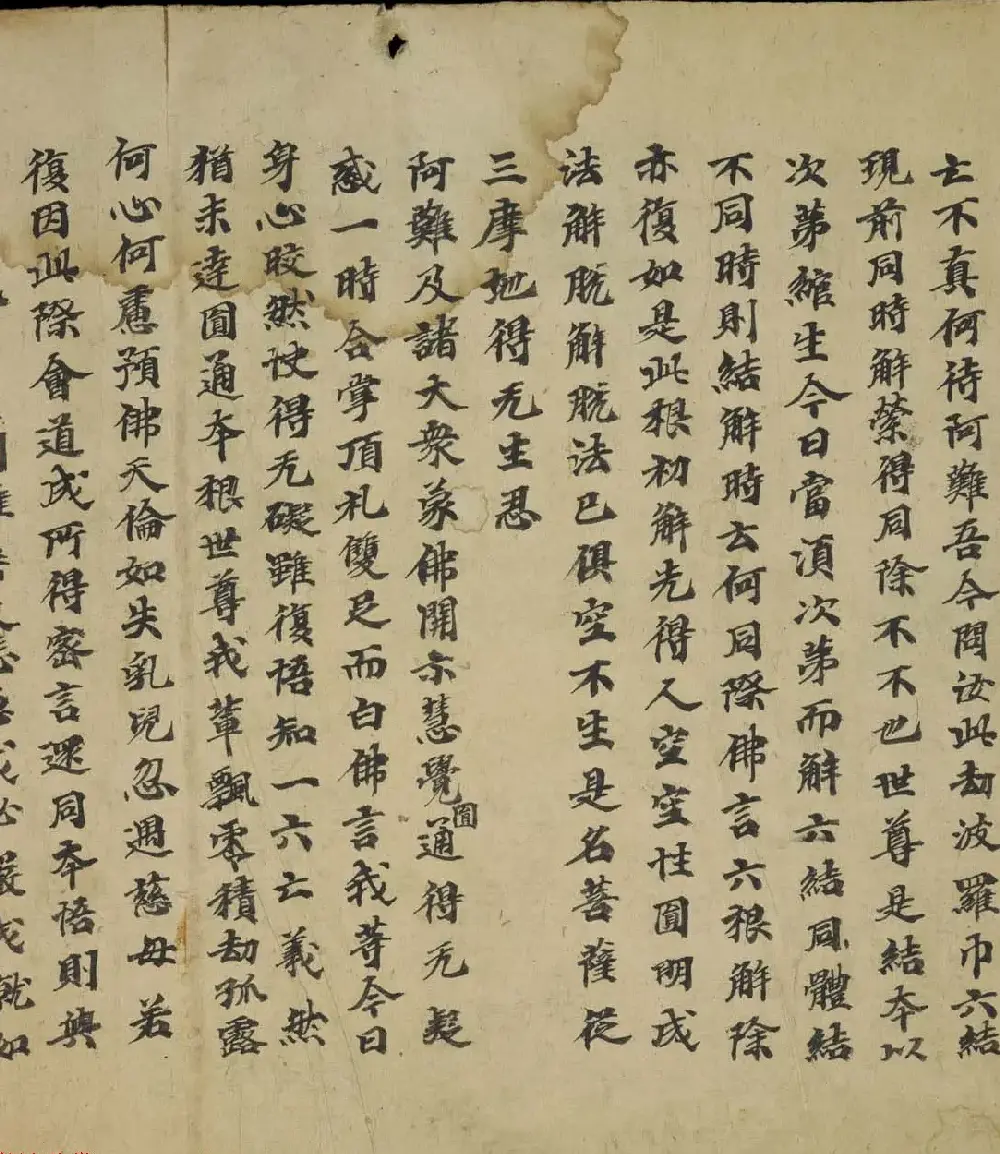 亡不真何待阿難吾今問汝此劫波羅巾六結
現前同時解縈得同除不不也世尊是結本以
次第綰生今日當須次第而解六結同體結
不同時則結解時云何同除佛言六根解除
亦復如是此根初解先得人空空性圓明成
法解脫解脫法已俱空不生是名菩薩從
三摩地得无生忍
阿難及諸大衆蒙佛開示慧覺圓通得无疑
惑一時合掌頂礼雙足而白佛言我等今日
身心皎然快得无礙雖復悟知一六亡義然
猶未達圓通本根世尊我輩飄零積劫孤露
何心何慮預佛天倫如失乳兒忽遇慈母若
復因此際會道成所得密言還同本悟則與